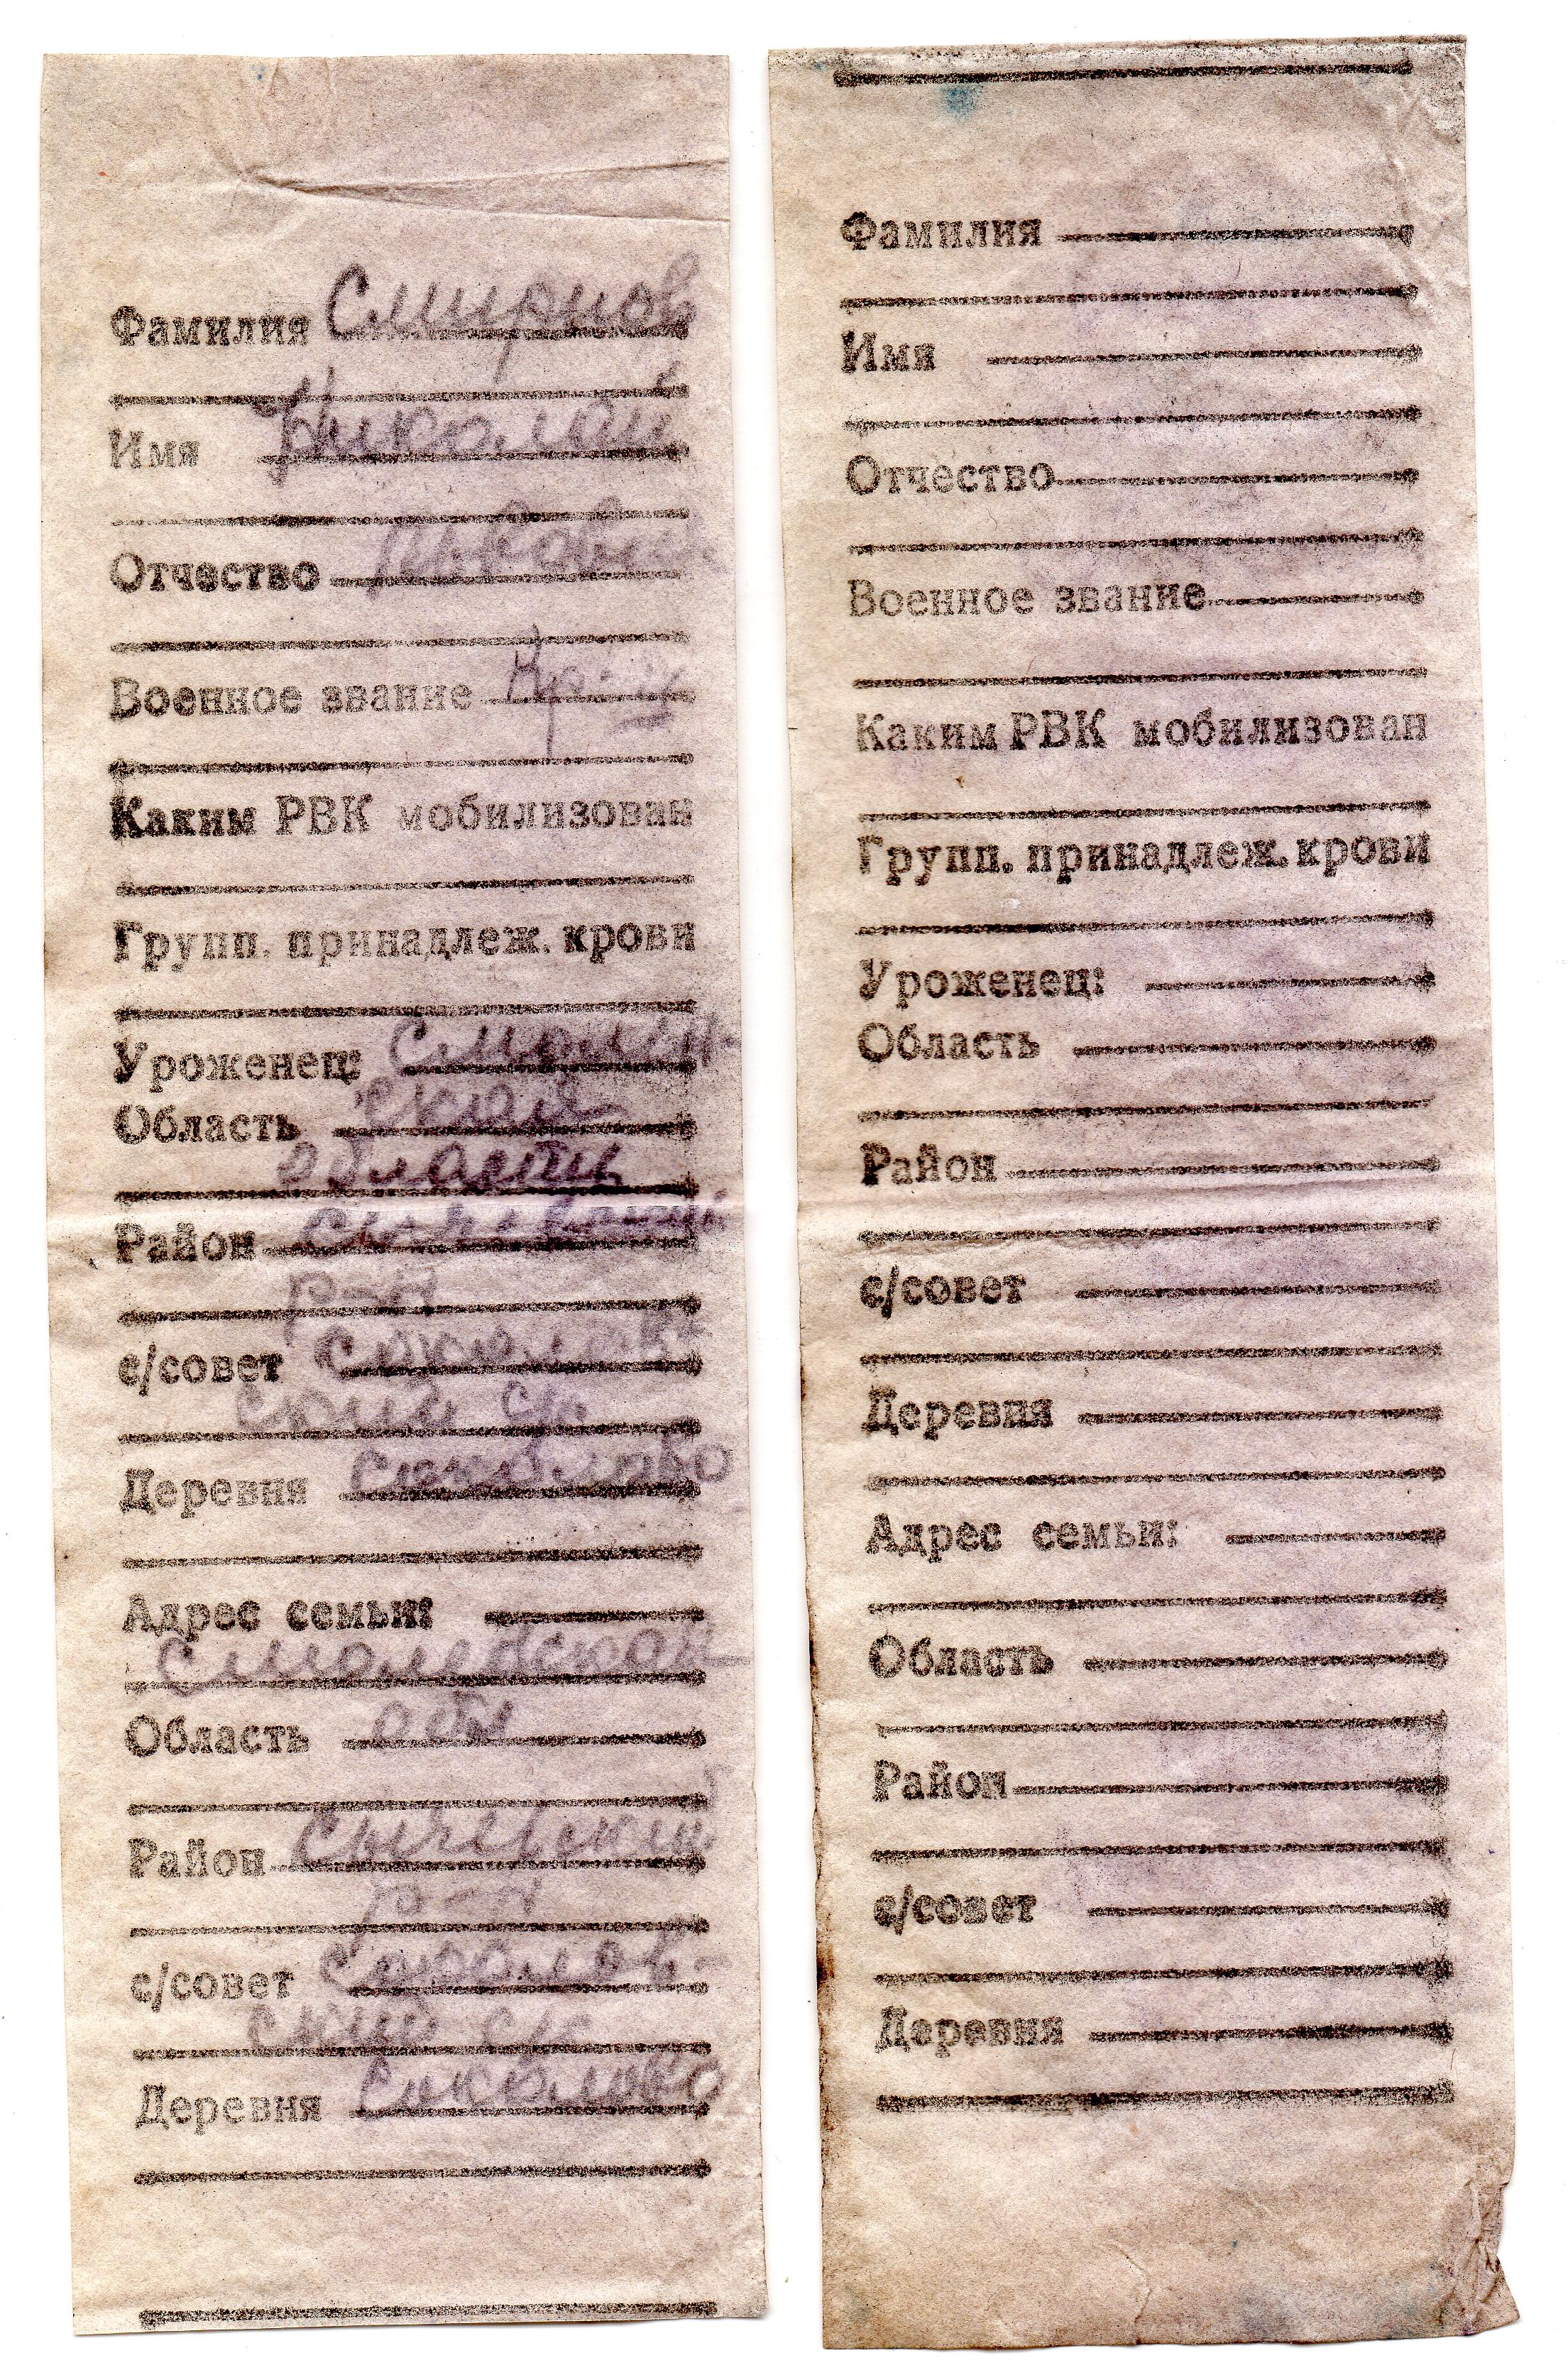 Фамилия Смирнов
Имя Николай
Отчество
Военное звание Кр-ц
Каким РВК мобилизован
Групп. принадлеж. крови
Уроженец: Смолен-
Область ская
область
Район Сычевский
р-н
с/совет Соколов-
ский с/с
Деревня Соколово
Адрес семьи:
Смоленская
Область обл
Район Сычевский
р-н
с/совет Соколов-
ский с/с
Деревня Соколово
Фамилия
Имя
Отчество
Военное звание
Каким РВК мобилизован
Групп. принадлеж. крови
Уроженец:
Область
Район
с/совет
Деревня
Адрес семьи:
Область
Район
с/совет
Деревня